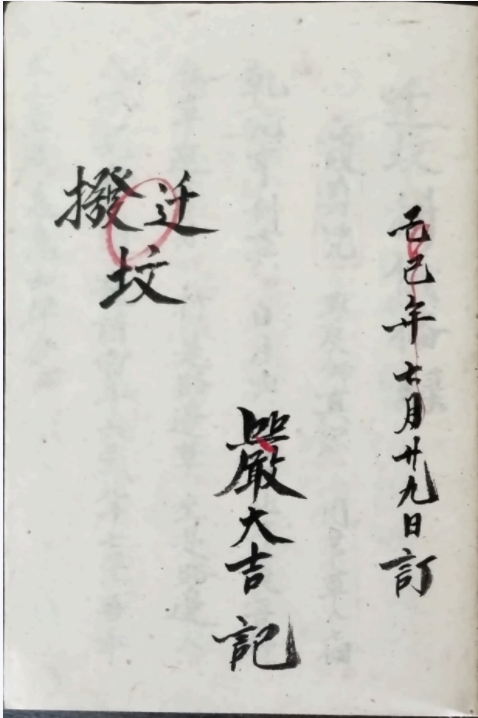 己巳年七月廿九日訂
迁撥
坟
嚴大吉記